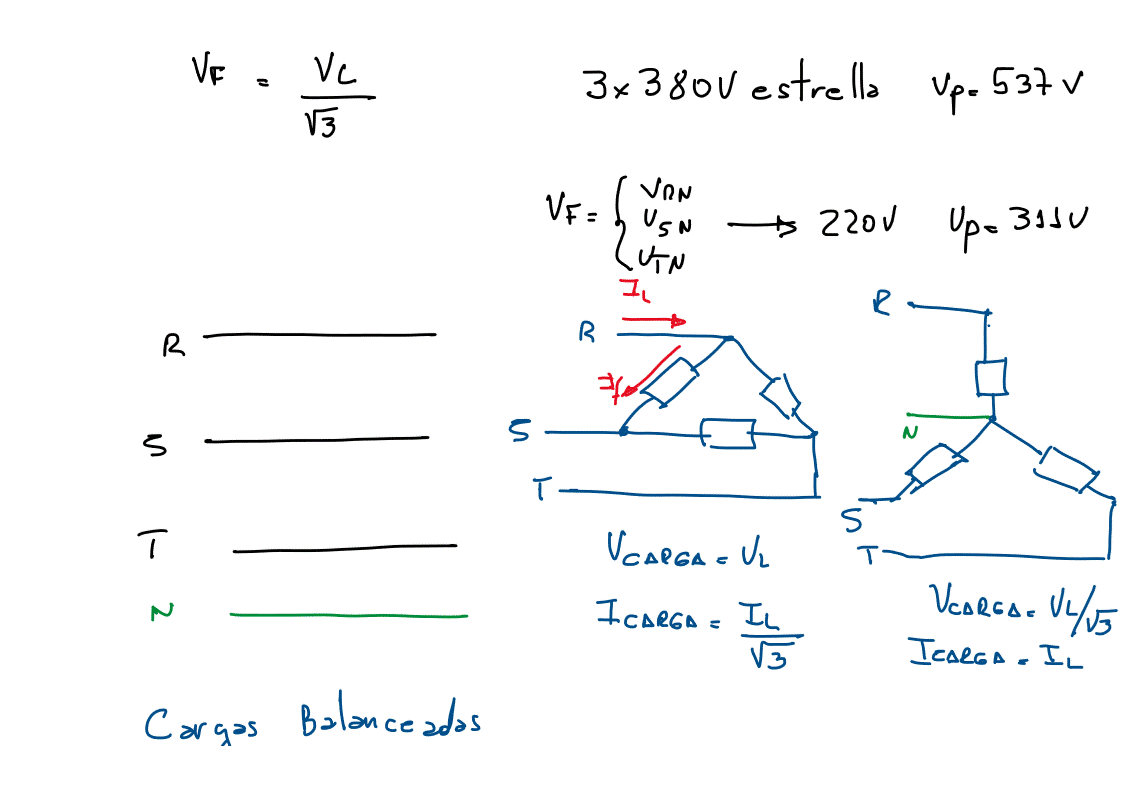 VF = VL/√3
3x380V estrella Vp= 537 V
VF = { VRN
VSN
VTN
→ 220V Vp= 311V
R
S
T
N
IL
R
If
S
T
VCARGA = VL
ICARGA = IL/√3
R
N
S
T
VCARGA = VL/√3
ICARGA = IL
Cargas Balanceadas